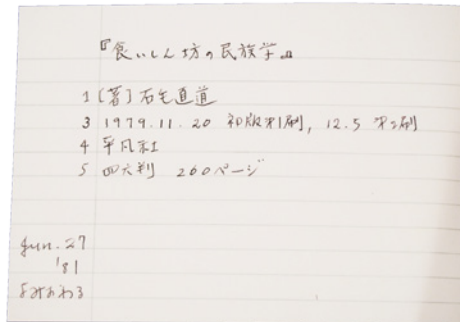 『食いしん坊の民族学』
1 [著] 石毛直道
3 1979.11.20 初版第1刷, 12.5 第2刷
4 平凡社
5 四六判 260ページ
Jun. 27
'81
よみおわる